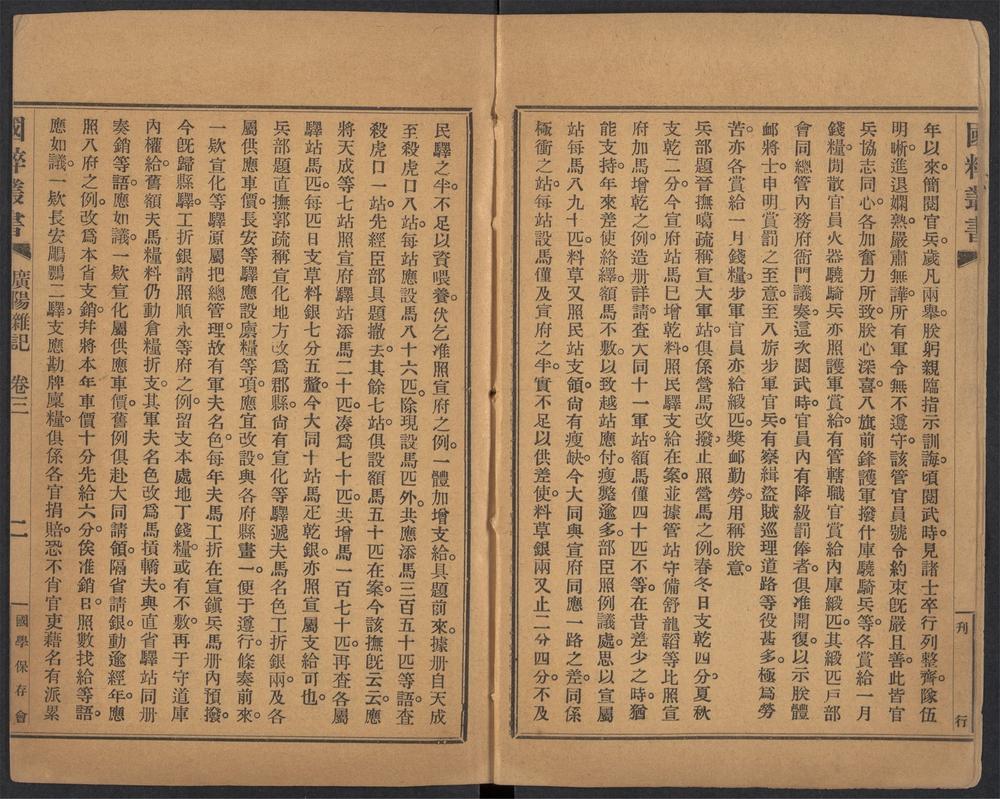 國粹叢書
刊行
年以來簡閱官兵歲凡兩舉朕躬親臨指示訓誨頃閱武時見諸士卒行列整齊隊伍
明晰進退嫻熟嚴肅無譁所有軍令無不遵守該管官員號令約束旣嚴且善此皆官
兵協志同心各加奮力所致朕心深喜八旗前鋒護軍撥什庫驍騎兵等各賞給一月
錢糧閒散官員火器驍騎兵亦照護軍賞給有管轄職官賞給內庫緞匹其緞匹戶部
會同總管內務府衙門議奏這次閱武時官員內有降級罰俸者俱准開復以示朕體
邮將士申明賞罰之至意至八旂步軍官兵有察緝盜賊巡理道路等役甚多極爲勞
苦亦各賞給一月錢糧步軍官員亦給緞匹獎邮勤勞用稱朕意
兵部題晉撫噶疏稱宣大軍站俱係營馬改撥止照營馬之例春冬日支乾四分夏秋
支乾二分今宣府站馬已增乾料照民驛支給在案並據管站守備舒龍韜等比照宣
府加馬增乾之例造册詳請查大同十一軍站額馬僅四十匹不等在昔差少之時猶
能支持年來差使絡繹額馬不敷以致越站應付瘦斃逾多部臣照例議處思以宣屬
站每馬八九十匹料草又照民站支領尙有瘦缺今大同與宣府同應一路之差同係
極衝之站每站設馬僅及宣府之半實不足以供差使料草銀兩又止二分四分不及
民驛之半不足以資喂養伏乞准照宣府之例一體加增支給具題前來據册自天成
至殺虎口八站每站應設馬八十六匹除現設馬匹外共應添馬三百五十匹等語查
殺虎口一站先經臣部具題撤去其餘七站俱設額馬五十匹在案今該撫旣云云應
將天成等七站照宣府驛站添馬二十匹湊爲七十匹共增馬一百七十匹再查各屬
驛站馬匹每匹日支草料銀七分五釐今大同十站馬疋乾銀亦照宣屬支給可也
兵部題直撫郭疏稱宣化地方改爲郡縣尙有宣化等驛遞夫馬名色工折銀兩及各
屬供應車價長安等驛應設廩糧等項應宜改設與各府縣畫一便于遵行條奏前來
一欵宣化等驛原屬把總管理故有軍夫名色每年夫馬工折在宣鎭兵馬册內預撥
今旣歸縣驛工折銀請照順永等府之例留支本處地丁錢糧或有不敷再于守道庫
內權給舊額夫馬糧料仍動倉糧折支其軍夫名色改爲馬摃轎夫與直省驛站同册
奏銷等語應如議一欵宣化屬供應車價舊例俱赴大同請領隔省請銀動逾經年應
照八府之例改爲本省支銷幷將本年車價十分先給六分俟准銷日照數找給等語
應如議一欵長安鵰鶚二驛支應勘牌廩糧俱係各官捐賠恐不肖官吏藉名有派累
國粹叢書
廣陽雜記
卷三
二
國學保存會